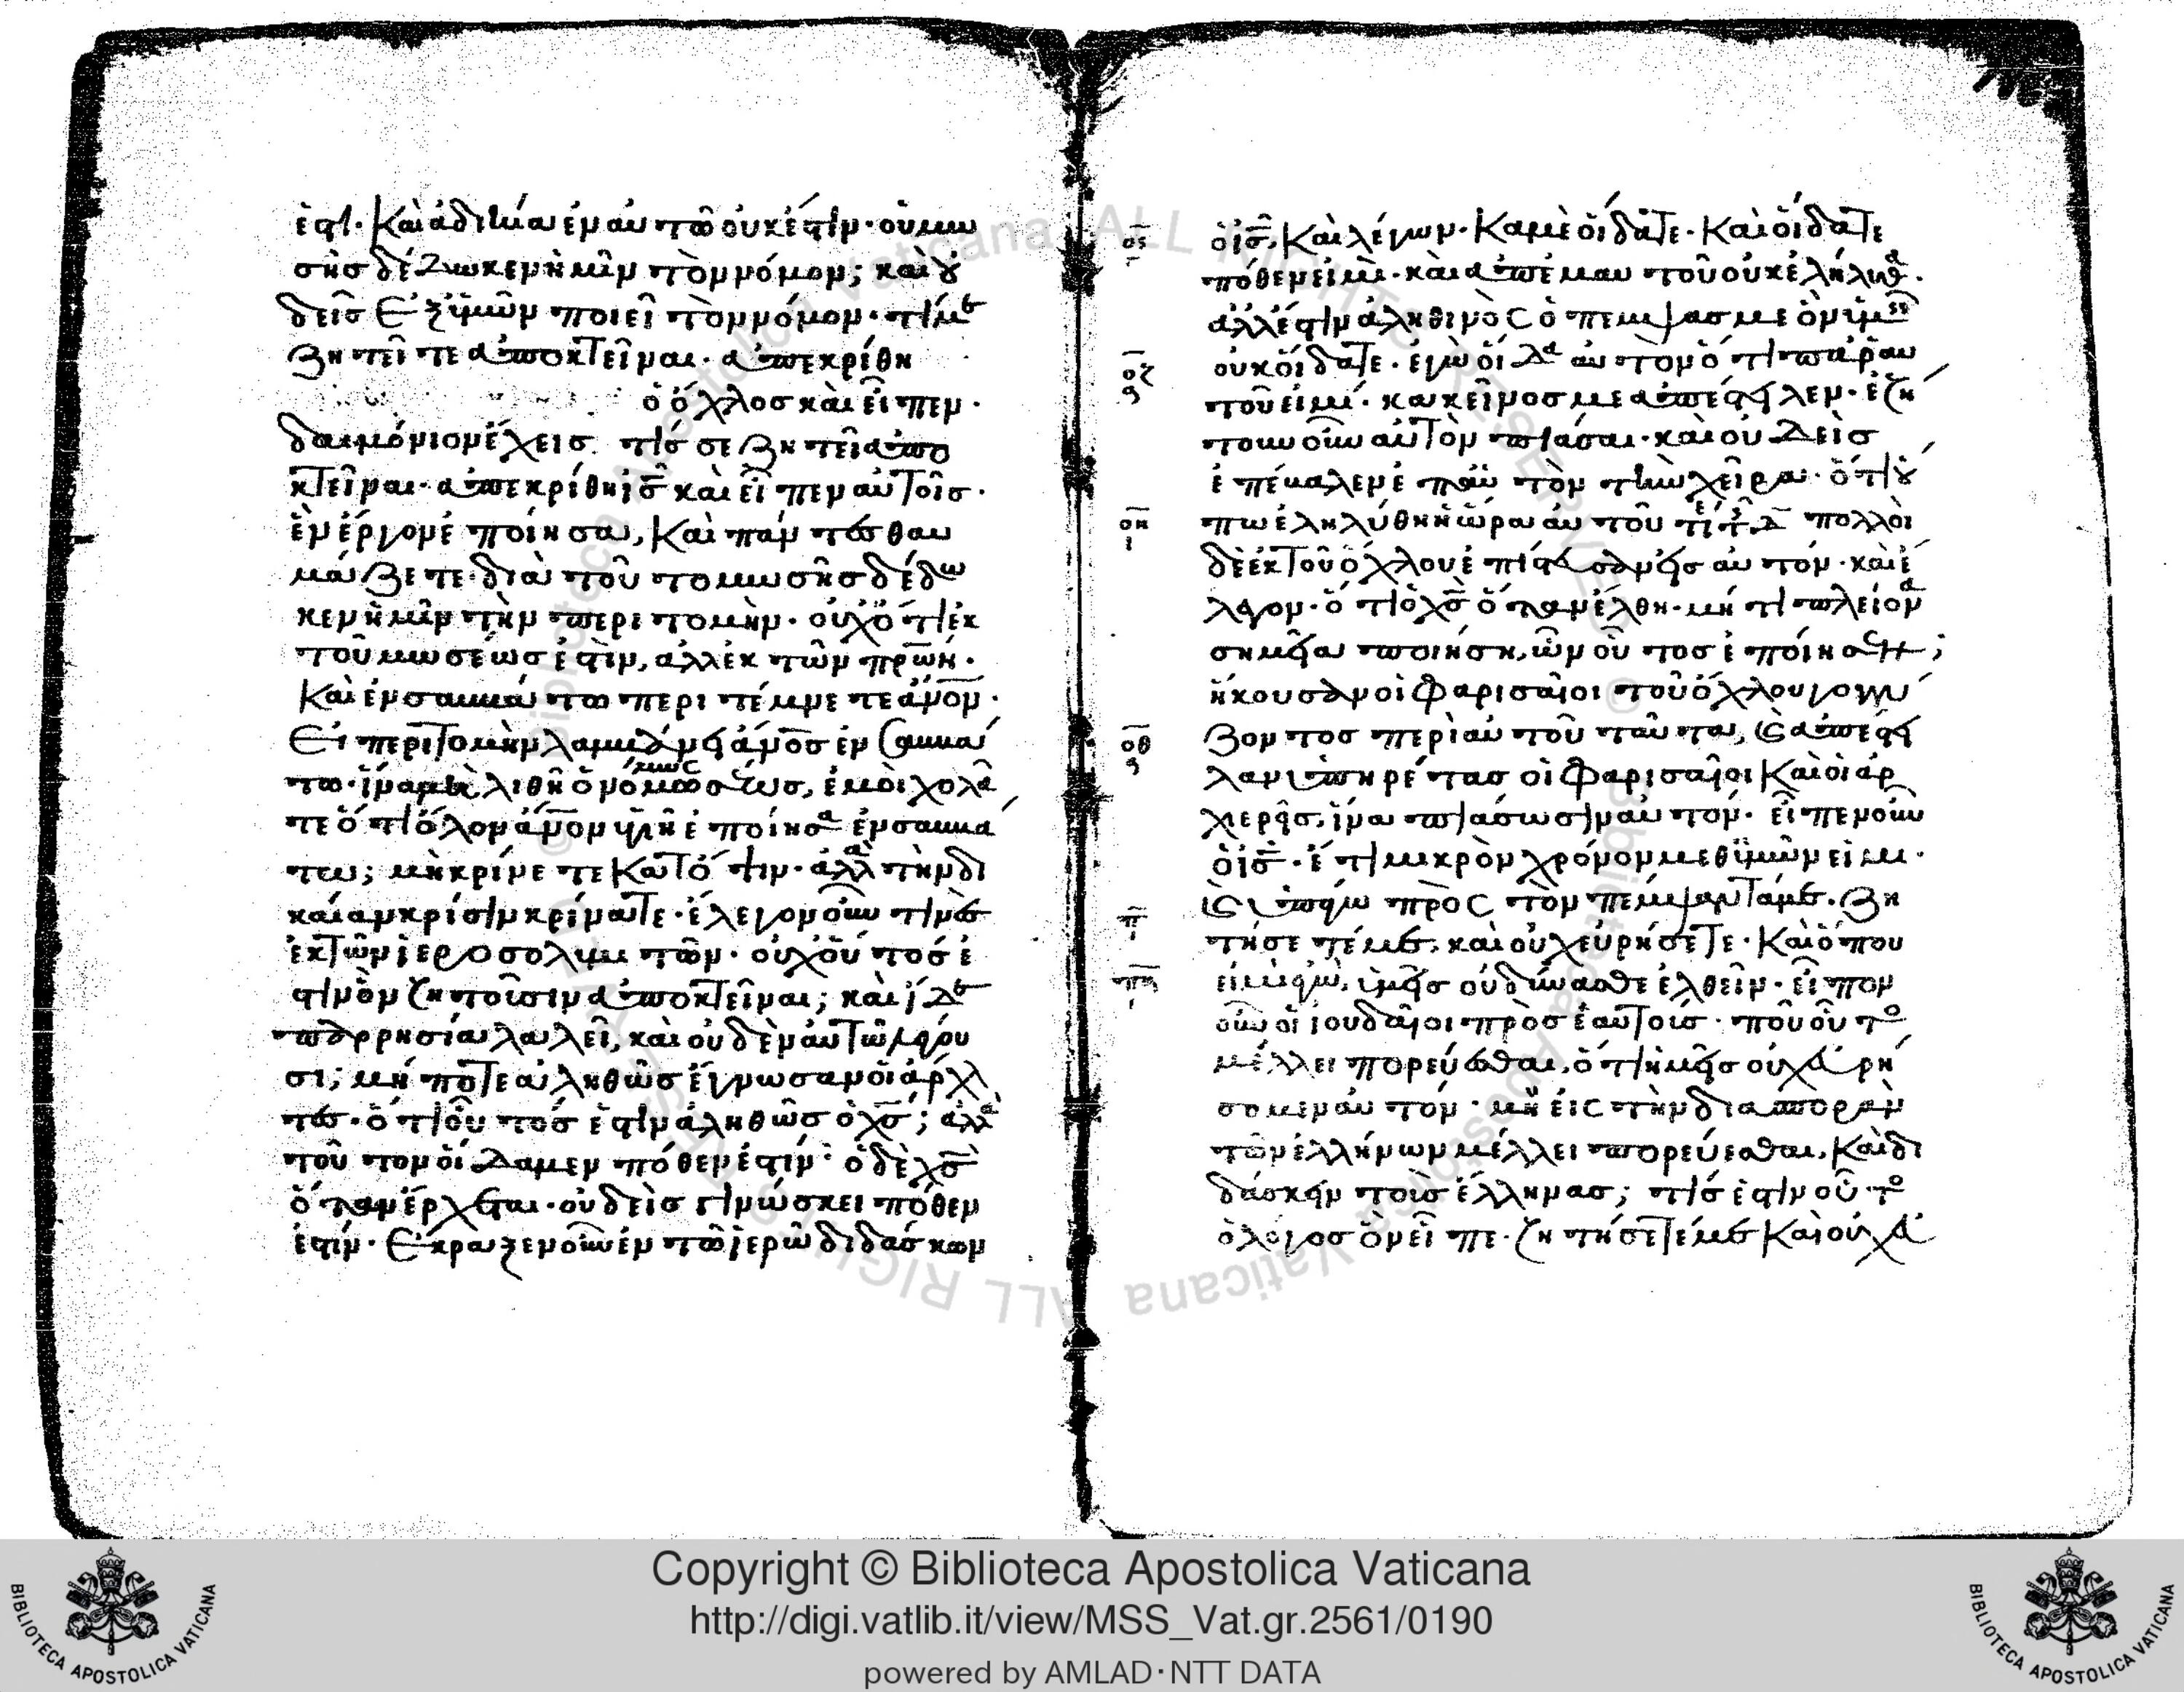 ἐστι· Καὶ ἀδικία ἐν αὐτῶ οὐκ ἔστιν· οὐ μω
σῆς δέδωκεν ἡμῖν τὸν νόμον; καὶ οὐ
δεῖς ἐξ ὑμῶν ποιεῖ τὸν νόμον· τί με
ζητεῖτε ἀποκτεῖναι· ἀπεκρίθη
ὁ ὄχλος καὶ εἶπεν·
δαιμόνιον ἔχεις· τίς σε ζητεῖ ἀπο
κτεῖναι· ἀπεκρίθη ἰς̅ καὶ εἶπεν αὐτοῖς·
ἓν ἔργον ἐποίησα, Καὶ πάντες θαυ
μάζετε· διὰ τοῦτο μωσῆς δέδω
κεν ἡμῖν τὴν περιτομὴν· οὐχ ὅτι ἐκ
τοῦ μωσέως ἐστὶν, ἀλλ' ἐκ τῶν πρ̅ων·
Καὶ ἐν σαββάτω περιτέμνετε ἀν̅ον·
Εἰ περιτομὴν λαμβάνει ἀν̅ος ἐν σαββά
τω· ἵνα μὴ λυθῆ ὁ νόμος μωσέως, ἐμοὶ χολᾶ
τε ὅτι ὅλον ἀν̅ον ὑγιῆ ἐποίησα ἐν σαββά
τω; μὴ κρίνετε Κατ' ὄψιν· ἀλλὰ τὴν δι
καίαν κρίσιν κρίνατε· ἔλεγον οὖν τινὲς
ἐκ τῶν ἱεροσολυμιτῶν· οὐχ οὗτος ἐ
στιν ὃν ζητοῦσιν ἀποκτεῖναι; καὶ ἴδε
παρρησία λαλεῖ, καὶ οὐδὲν αὐτῶ λέγου
σι; μή ποτε ἀληθῶς ἔγνωσαν οἱ ἄρχον
τες· ὅτι οὗτος ἐστιν ἀληθῶς ὁ χς̅; ἀλλὰ
τοῦτον οἴδαμεν πόθεν ἐστίν· ὁ δὲ χς̅
ὅταν ἔρχεται· οὐδεὶς γινώσκει πόθεν
ἐστίν· Ἔκραξεν οὖν ἐν τῶ ἱερῶ διδάσκων
ος̅ ὁ ις̅, Καὶ λέγων· Κἀμὲ οἴδατε· Καὶ οἴδατε
πόθεν εἰμὶ· καὶ ἀπ' ἐμαυτοῦ οὐκ ἐλήλυθα·
ἀλλ' ἔστιν ἀληθινὸς ὁ πέμψας με ὃν ὑμεῖς
οζ̅ οὐκ οἴδατε· ἐγὼ οἶδα αὐτὸν ὅτι παρ' αὐ
τοῦ εἰμί· κἀκεῖνος με ἀπέστειλεν· ἐζή
τουν οὖν αὐτὸν πιάσαι· καὶ οὐδεὶς
ἐπέβαλεν ἐπ' αὐτὸν τὴν χεῖρα· ὅτι οὔ
οη̅ πω ἐληλύθη ἡ ὥρα αὐτοῦ πολλοὶ
δὲ ἐκ τοῦ ὄχλου ἐπίστευσαν εἰς αὐτόν· καὶ ἔ
λεγον· ὅτι ὁ χς̅ ὅταν ἔλθη· μή τι πλείονα
σημεῖα ποιήση, ὧν οὗτος ἐποίησεν;
ἤκουσαν οἱ Φαρισαῖοι τοῦ ὄχλου γογγύ
οθ̅ ζοντος περὶ αὐτοῦ ταῦτα, καὶ ἀπέστει
λαν ὑπηρέτας οἱ Φαρισαῖοι Καὶ οἱ ἀρ
χιερεῖς, ἵνα πιάσωσιν αὐτόν· εἶπεν οὖν
ὁ ις̅· ἔτι μικρὸν χρόνον μεθ' ὑμῶν εἰμι·
π̅ καὶ ὑπάγω πρὸς τὸν πέμψαντά με· ζη
τήσετέ με· καὶ οὐχ εὑρήσετε· Καὶ ὅπου
πα̅ εἰμὶ ἐγὼ, ὑμεῖς οὐ δύνασθε ἐλθεῖν· εἶπον
οὖν οἱ ἰουδαῖοι πρὸς ἑαυτοὺς· ποῦ οὗτος
μέλλει πορεύεσθαι, ὅτι ἡμεῖς οὐχ εὑρή
σομεν αὐτόν· μὴ εἰς τὴν διασπορὰν
τῶν ἑλλήνων μέλλει πορεύεσθαι, Καὶ δι
δάσκειν τοὺς ἕλληνας; τίς ἐστιν οὗτος
ὁ λόγος ὃν εἶπε· ζητήσετέ με Καὶ οὐχ εὑ
Copyright © Biblioteca Apostolica Vaticana
http://digi.vatlib.it/view/MSS_Vat.gr.2561/0190
powered by AMLAD·NTT DATA
BIBLIOTECA APOSTOLICA VATICANA
BIBLIOTECA APOSTOLICA VATICANA